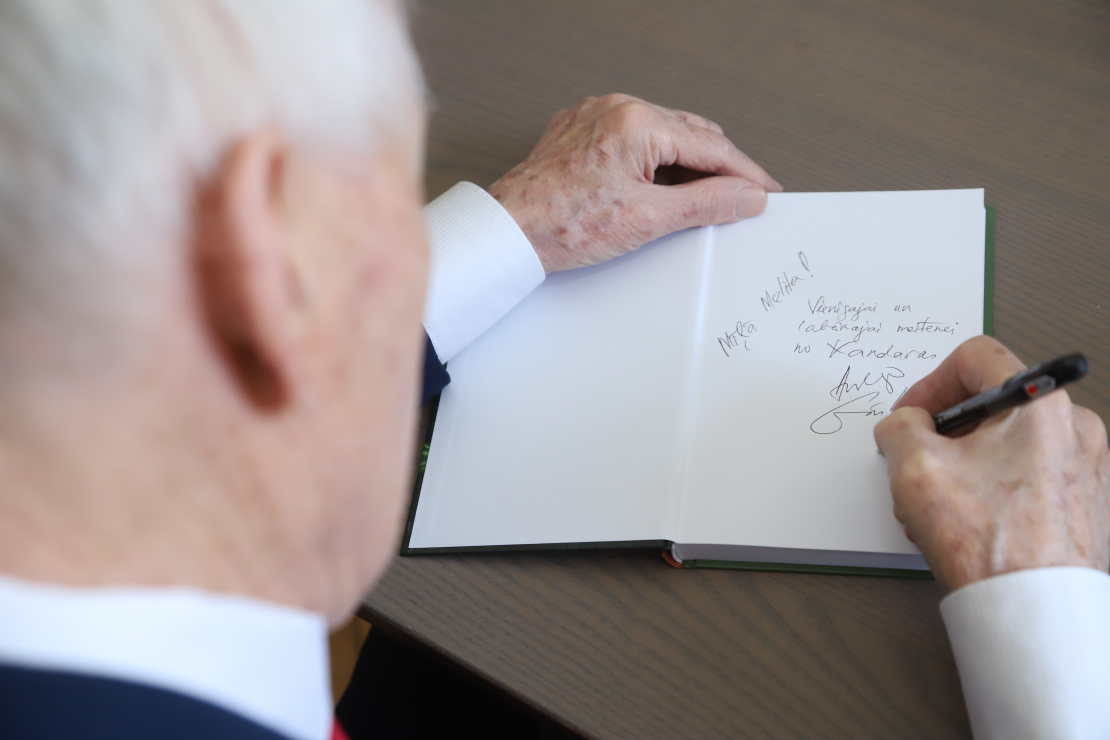 Mīļā Melita!
Vienīgajai un
labākajai meitenei
no Kandavas